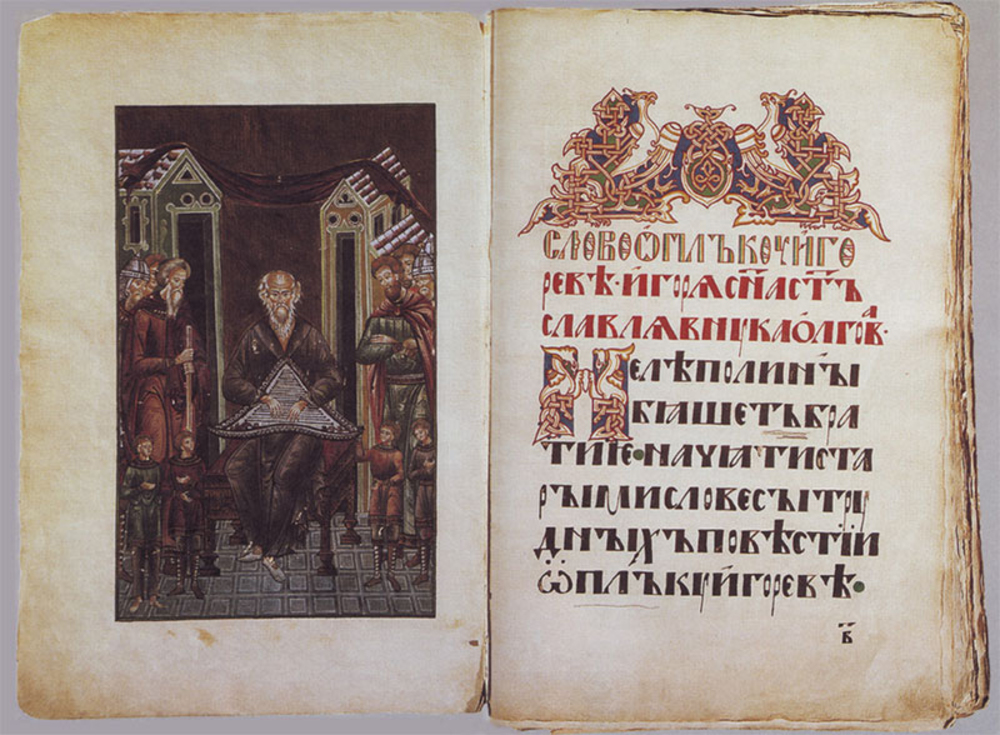 СЛОВОѠПЛЪКꙊИГО
РЕВѢ·ИГОРѦСН҃АСТ҃Ъ
СЛАВЛѦВНꙊКАОЛГОВⷶ·
НЕЛѢПОЛИНЫ
БꙖШЕТЪБРА
ТИѤ•НАЧꙖТИСТА
РЫМИСЛОВЕСЫТРꙊ
ДНЫХЪПОВѢСТІИ
ѠПЛЪКꙊИГОРЕВѢ•
В҃